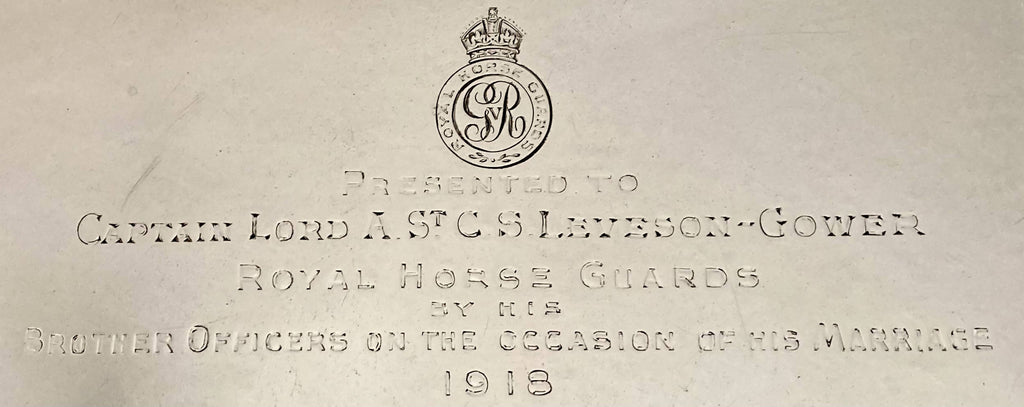 ROYAL HORSE GUARDS
GVR
PRESENTED TO
CAPTAIN LORD A. ST C. S. LEVESON-GOWER
ROYAL HORSE GUARDS
BY HIS
BROTHER OFFICERS ON THE OCCASION OF HIS MARRIAGE
1918